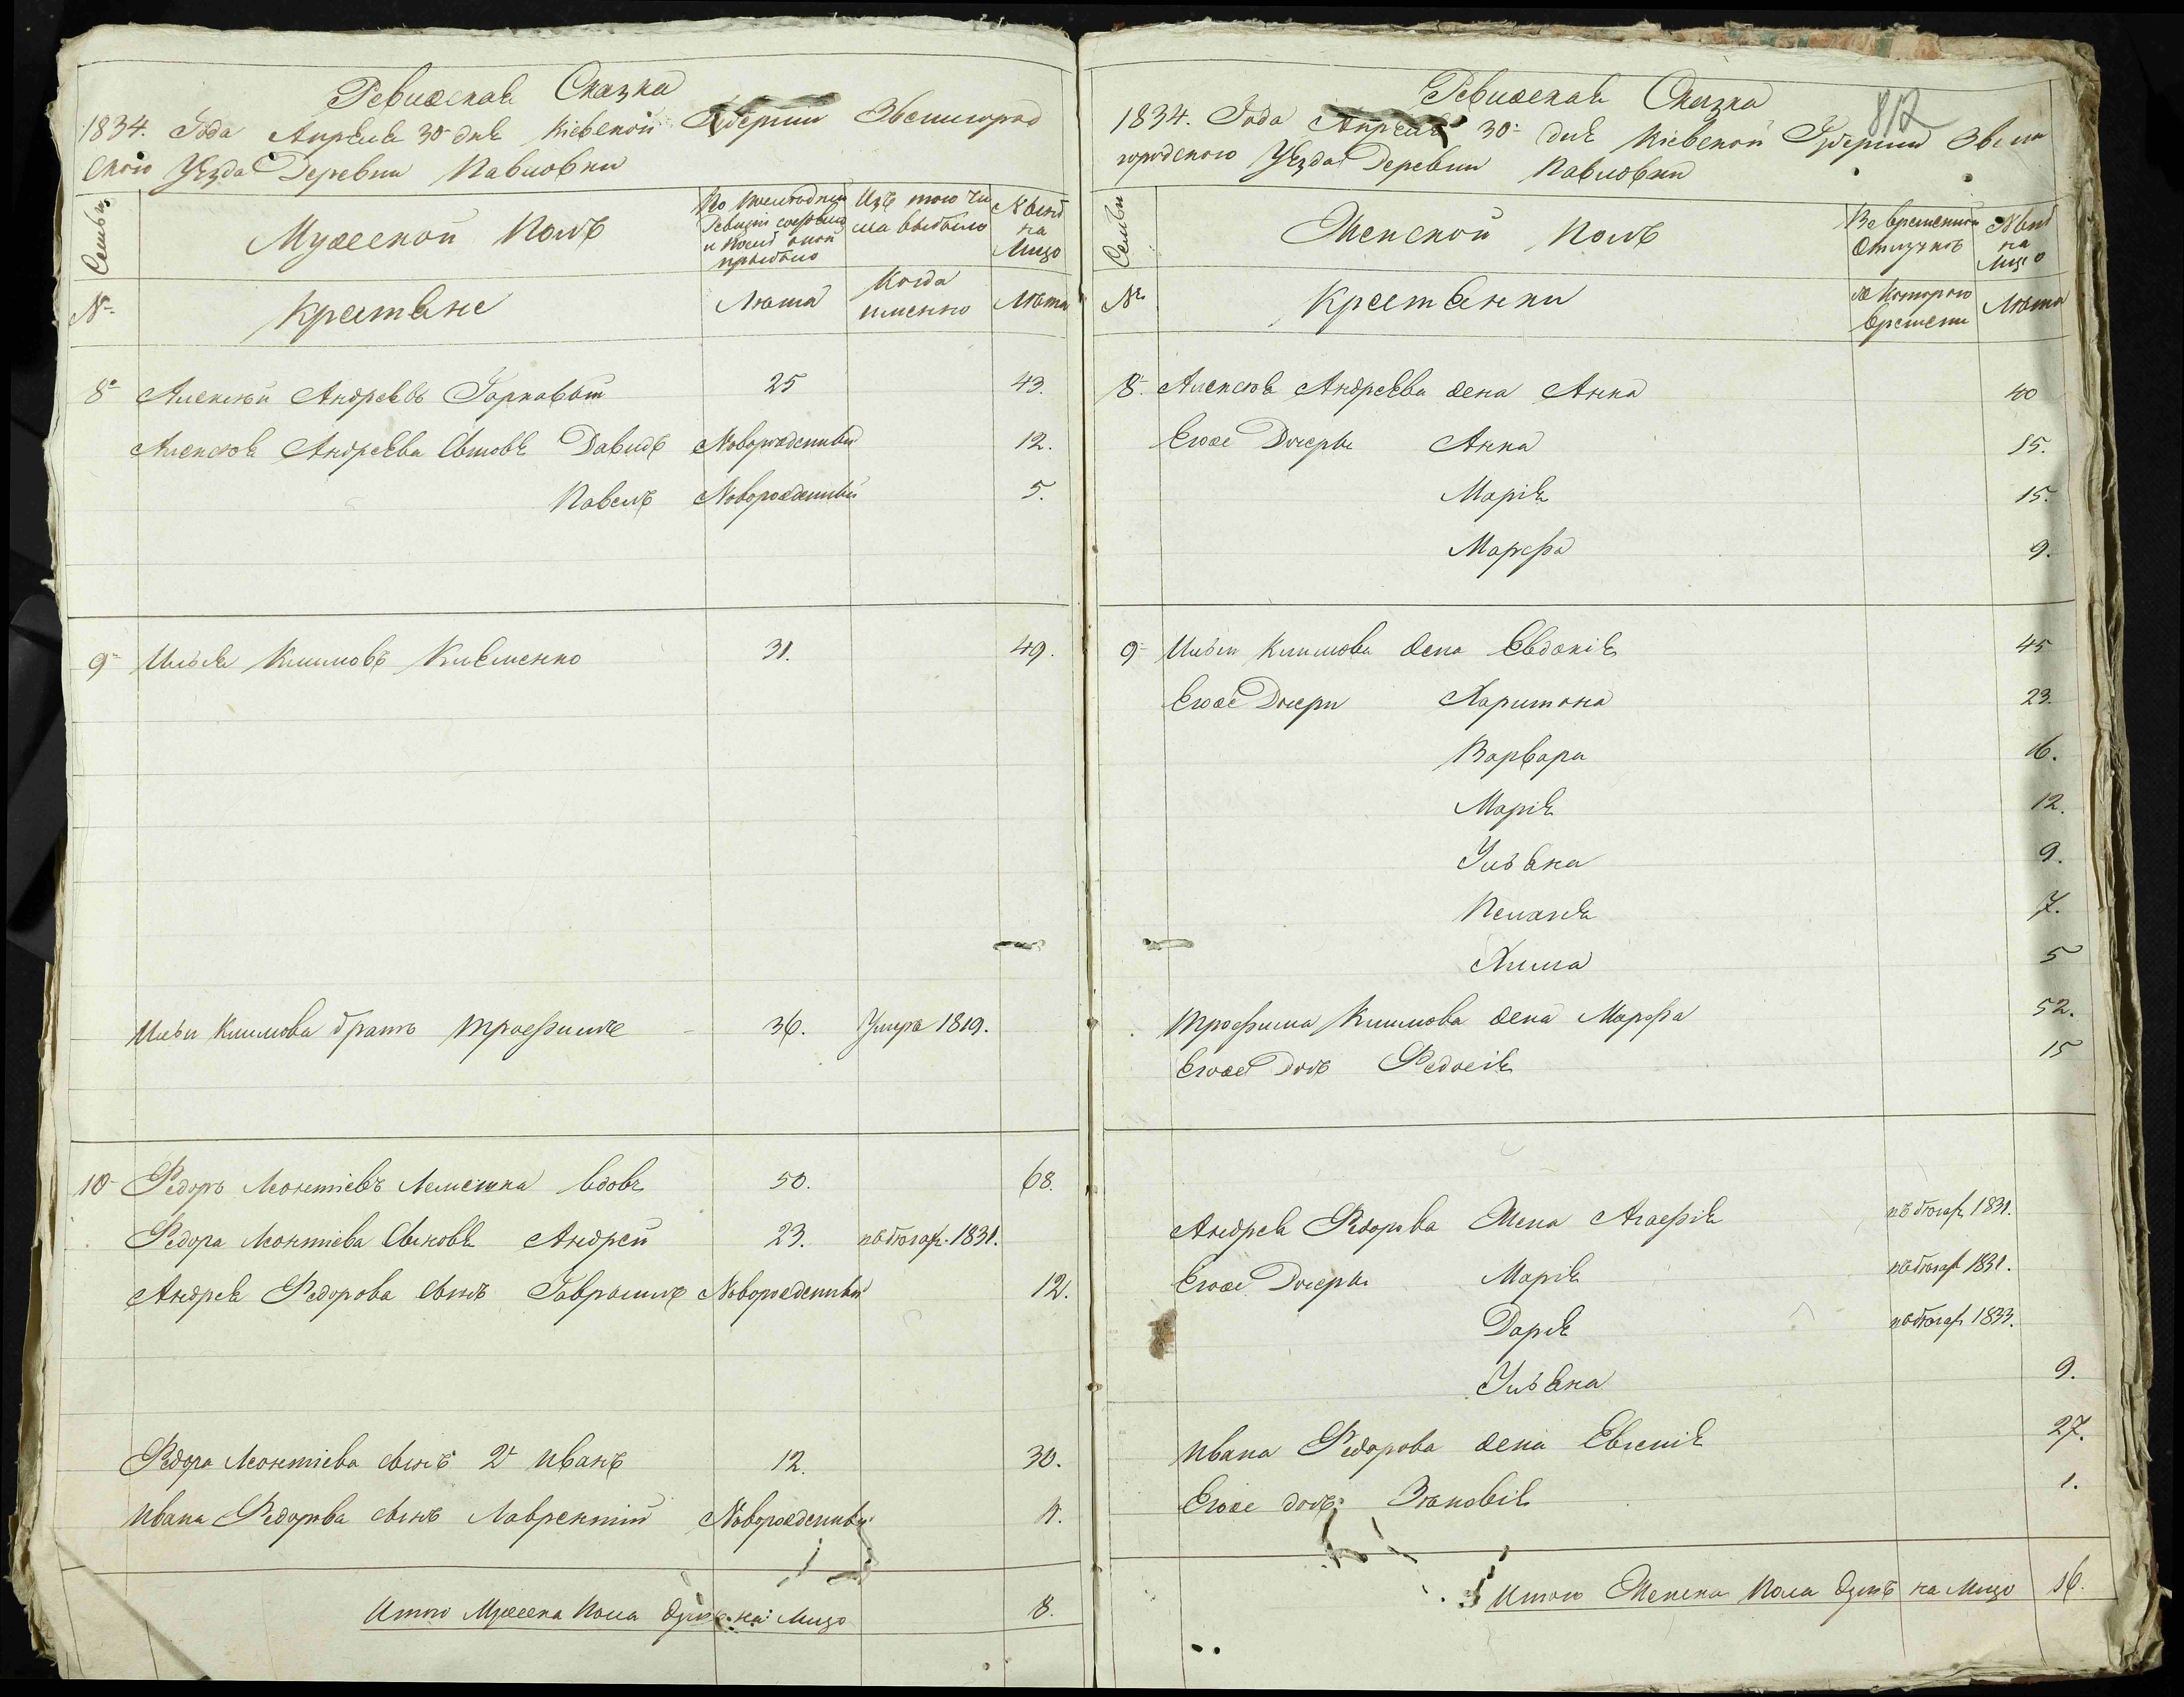 Ревижская Сказка
1834. Года Апреля 30 дня Кіевской Губерніи Звенигород
ского Уезда Деревни Павловки
Семьи
Мужеской Полъ
По последней Ревизіи состояло и после оной прибыло
Изъ того числа выбыло
Ныне на Лицо
№
Крестяне
Лѣта
Когда именно
Лѣта
8 Алексѣй Андреевъ Горковый 25 43.
Алексѣя Андреева Сыновя Давидъ Новорожденный 12.
Павелъ Новорожденный 5.
9 Илья Климовъ Клименко 31. 49.
Ильи Климова братъ Трофимъ 36. Умре 1819.
10 Федоръ Леонтіевъ Лемешка вдовъ 50. 68.
Федора Леонтіева Сыновя Андрей 23. въ бегах 1831.
Андрея Федорова сынъ Гаврыилъ Новорожденный 12.
Федора Леонтіева сынъ 2й Иванъ 12. 30.
Ивана Федорова сынъ Лаврентій Новорожденный
Итого Мужеска Пола душъ на Лицо 8.
Ревижская Сказка
812
1834. Года Апреля 30 дня Кіевской Губерніи Звени
городского Уезда Деревни Павловки
Семьи
Женской Полъ
Во временной Отлучкѣ
Ныне на Лицо
№
Крестянки
съ Которого времени
Лѣта
8. Алексѣя Андреева жена Анна 40
Егоже Дочеры Анна 15.
Марія 15.
Марфа 9.
9 Ильи Климова жена Евдокія 45
Егоже Дочери Харитона 23.
Варвара 16.
Марія 12.
Ульяна 9.
Пелагея 7.
Химма 5
Трофима Климова жена Марфа 52.
Егоже дочь Федосія 15
Андрея Федорова Жена Агафія въ бегах 1831.
Егоже Дочеры Марія въ бегах 1831.
Дарія въ бегах 1833.
Ульяна 9.
Ивана Федорова жена Евгенія 27.
Егоже дочь Зѣновія 1.
Итого Женска Пола душъ на Лицо 16.